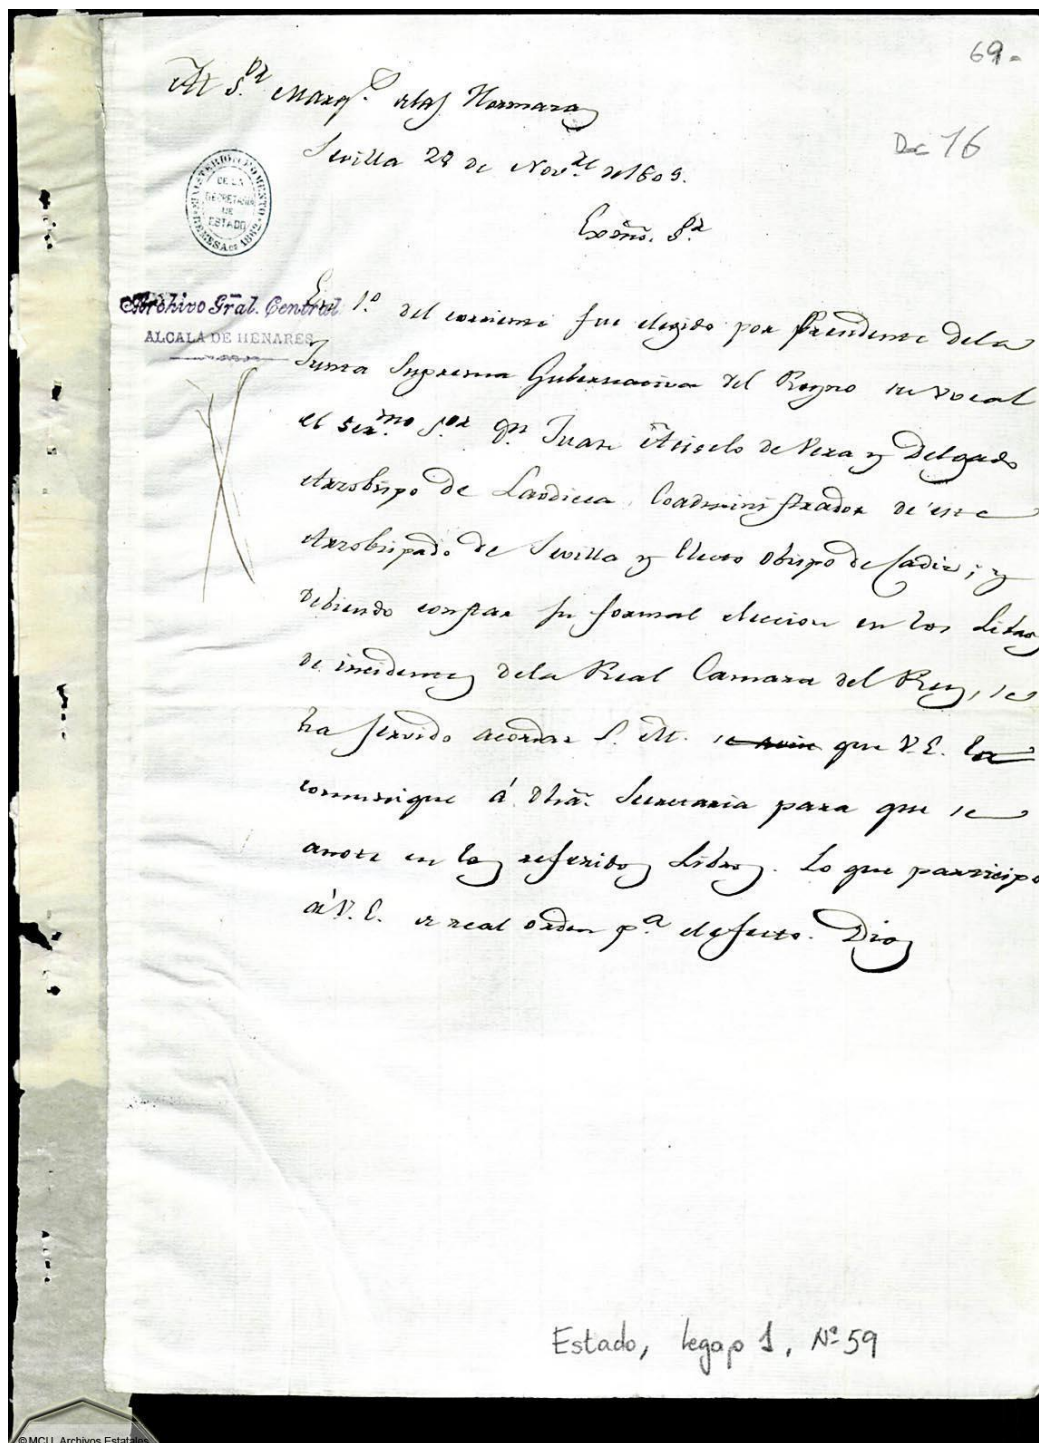 69-
Al S.or Marq.s de las Hormazas
Doc 16
Sevilla 28 de Nov.re de 1809.
MINISTERIO FOMENTO
DE LA
SECRETARIA
DE
ESTADO
REMESA DE 1882
Exmo. S.or
Archivo Gral. Central
ALCALA DE HENARES
En 1.o del corriente fue elegido por Presidente dela
Junta Suprema Gubernativa del Reyno su vocal
el Ser.mo S.or Dn Juan Acisclo de Vera y Delgado
Arzobispo de Laodicea Coadministrador de este
Arzobispado de Sevilla y Electo Obispo de Cadiz; y
debiendo constar su formal eleccion en los Libros
de incidentes dela Real Camara del Rey, se
ha servido acordar S. M. se que V.E. lo
comunique á dha. Secretaria para que se
anote en los referidos Libros. Lo que participo
á V. E. de real orden p.a el efecto. Dios
Estado, legajo 1, Nº 59
© MCU. Archivos Estatales